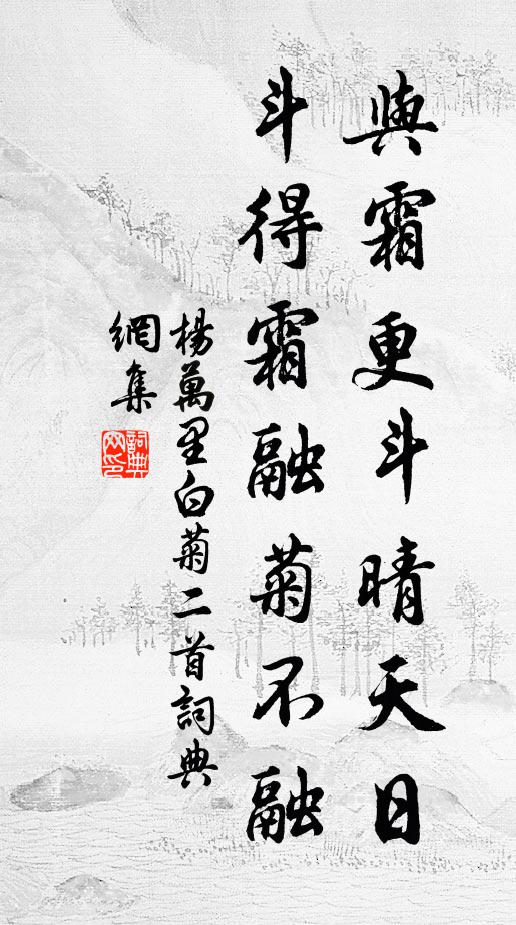 與霜更斗晴天日
斗得霜融菊不融
楊萬里白菊二首詞典
網集
詞典
網印